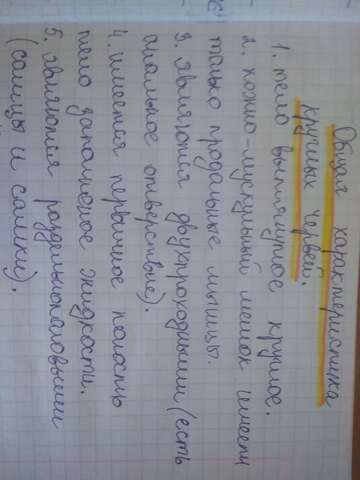 Общая характеристика
круглых червей.
1. тело вытянутое круглое.
2. кожно-мускульный мешок имеет
только продольные мышцы.
3. являются двухпроходными (есть
анальное отверстие).
4. имеется первичное полость
тело заполненое жидкости.
5. являются раздельнополовыми
(самцы и самки).